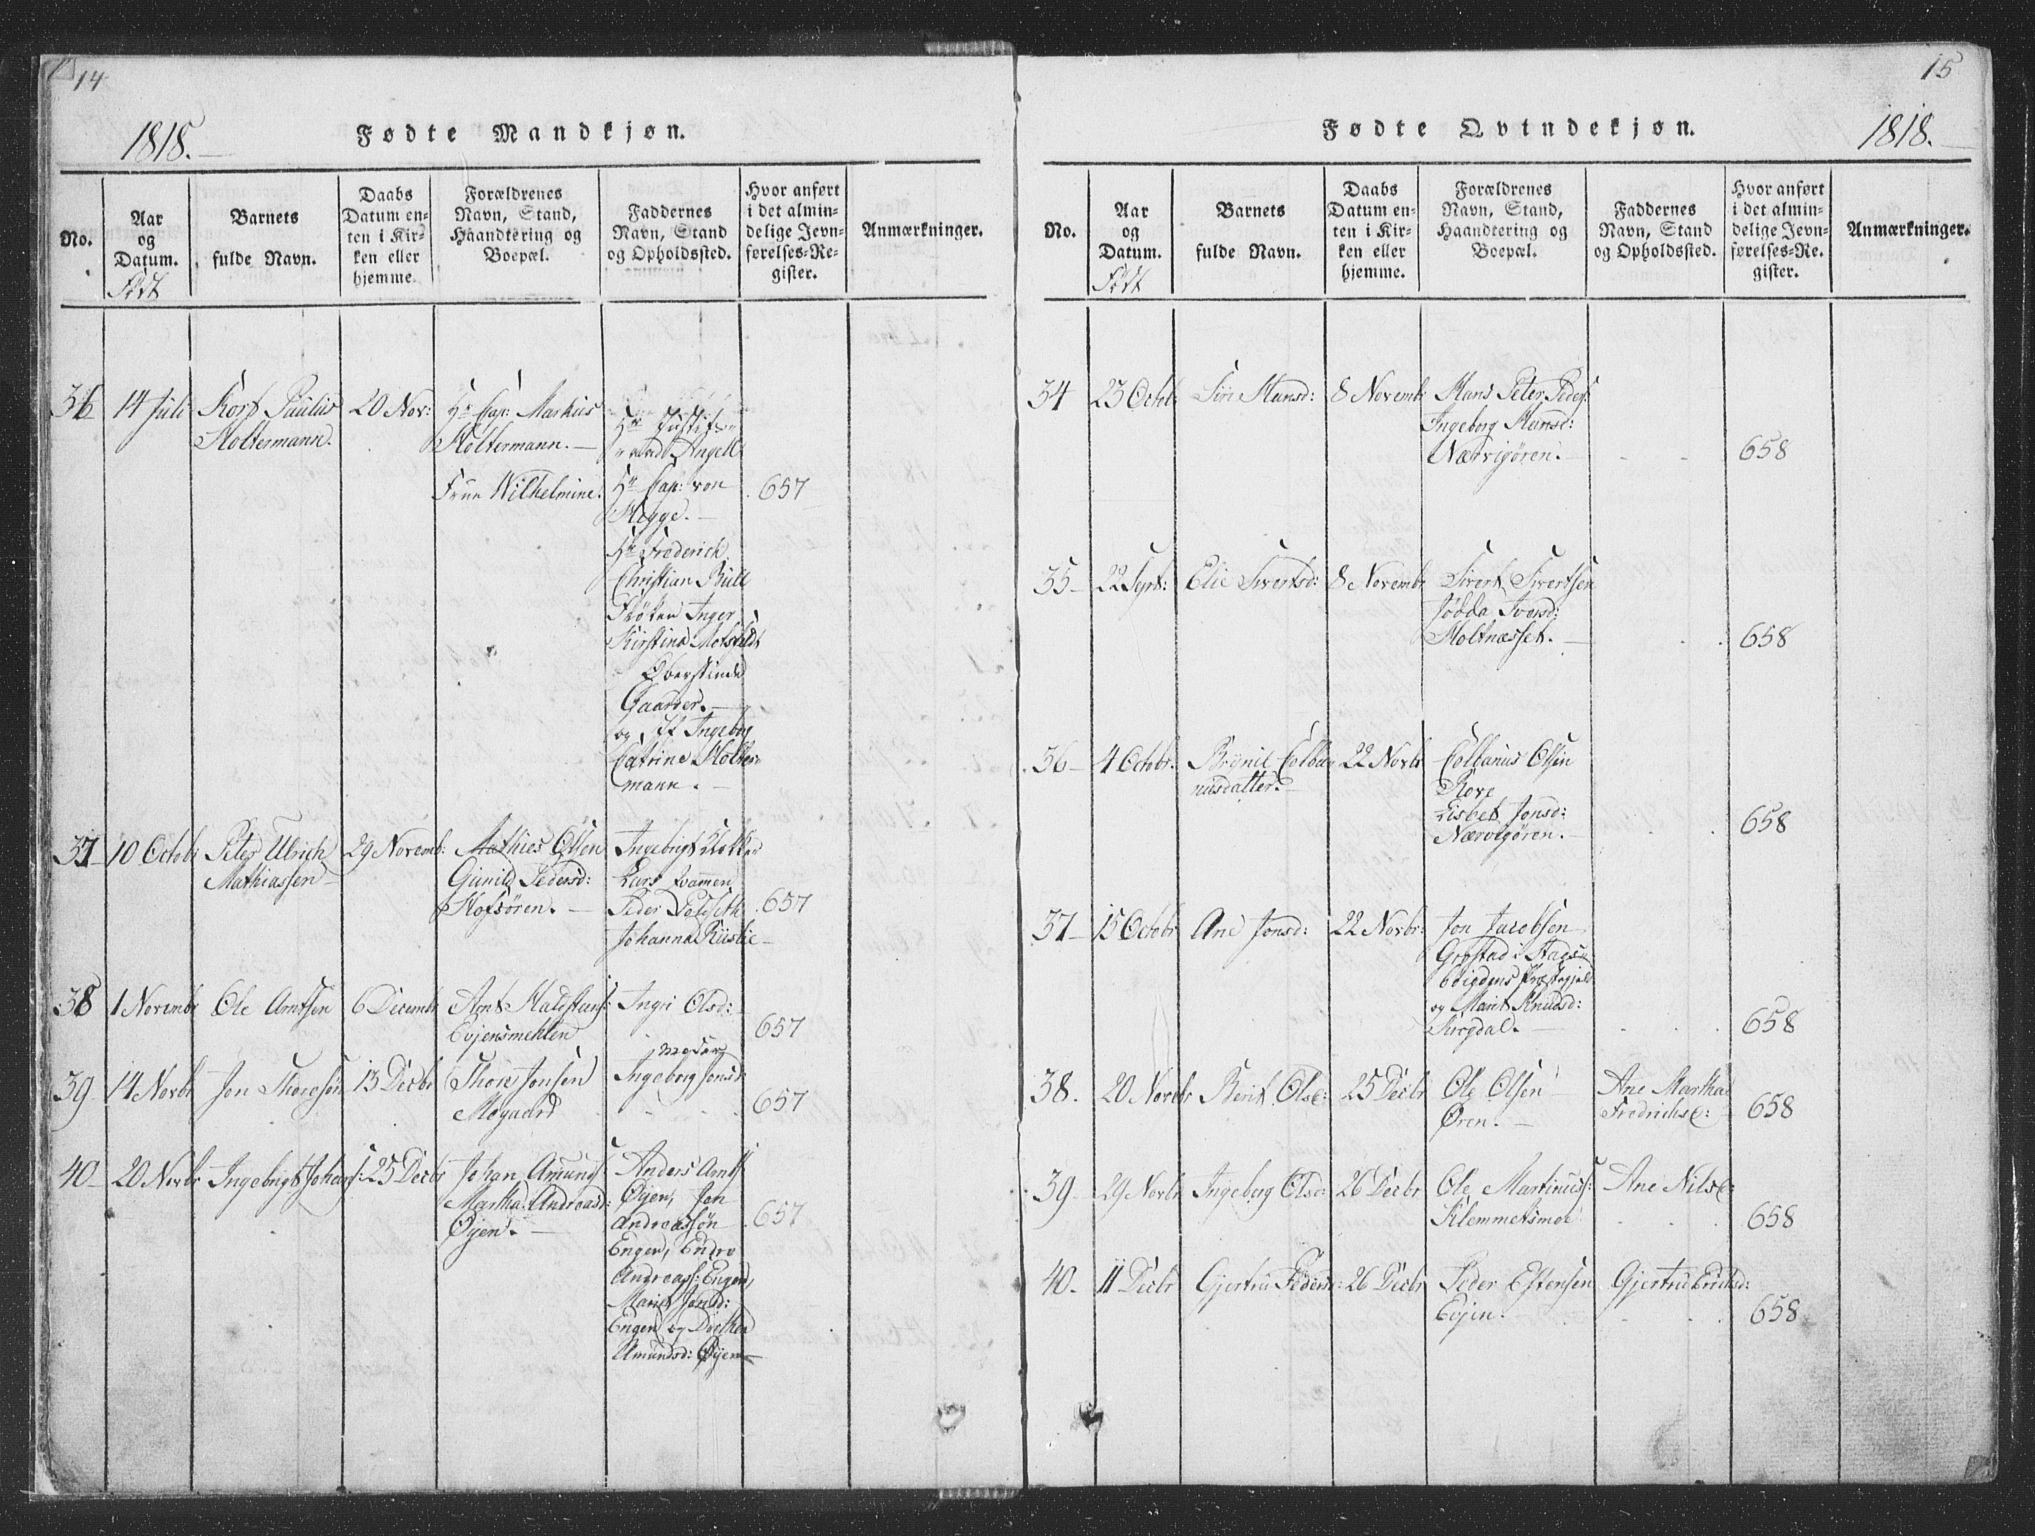 14
1818.
Fødte Mandkjøn.
No.
Aar
og
Datum.
Født
Barnets
fulde Navn.
Daabs
Datum en-
ten i Kir-
ken eller
hjemme.
Forældrenes
Navn, Stand,
Haandtering og
Boepæl.
Faddernes
Navn, Stand
og Opholdssted.
Hvor anført
i det almin-
delige Jevn-
førelses-Re-
gister.
Anmærkninger.
36
14 Juli
Paulus
Holtermann.
20 Nov:
Hr Cap: Markus
Holtermann.
Frue Wilhelmine.
Angell
Hr Cap: von
Krogge.
Hr Frederich
Christian Bull
Frøken Inger
Kirstine Motsfeldt
Oberstinde
Gaarder.
og Jf Ingeborg
Catrine Holter-
mann.
657
37
10 Octobr
Peter Ulrich
Mathiassen
29 Novemb:
Mathies Olsen
Gunild Pedersd:
Hofsören.
Ingebrigt
Lars
Peder
Johanna
657
38
1 Novembr
Ole Arntsen
6 Decembr
Arnt Haldstans:
Evjensmehlen
Ingri Olsd:
657
39
14 Novbr
Jon Thoresön
13 Decbr
Thore Jonsen
Mogaard
moder
Ingeborg Jonsd:
657
40
20 Novbr
Ingebrigt Johans:
25 Decbr
Johan Amunds:
Martha Andreasd:
Öyen.
Anders Arnts
Öyen, Jon
Andreassön
Engen, Endre
Andreass: Engen,
Marit Jonsd:
Engen og Dorthea
Amundsd: Öyen
657
15
Fødte Qvindekjøn.
1818.
No.
Aar
og
Datum.
Født
Barnets
fulde Navn.
Daabs
Datum en-
ten i Kir-
ken eller
hjemme.
Forældrenes
Navn, Stand,
Haandtering og
Boepæl.
Faddernes
Navn, Stand
og Opholdssted.
Hvor anført
i det almin-
delige Jevn-
førelses-Re-
gister.
Anmærkninger.
34
23 Octob:
Siri Hansd:
8 Novembr
Hans Peter Peders:
Ingeborg Hansd:
Nærvigören.
658
35
22 Sept:
Elie Sivertsd:
8 Novembr
Sivert Sivertsen
Jödda Iversd:
Holtnæsset.
658
36
4 Octobr:
Brönil Colba-
nusdatter.
22 Novbr
Colbanus Olsen
Rove
Lisbet Jonsd:
Nærvigören.
658
37
15 Octobr
Ane Jonsd:
22 Novbr:
Jon Jacobsen
Grøstad i Stads-
bøigdens Præstegjeld
og Marit Knudsd:
Krogdal.
658
38.
20 Novbr
Berit Olsd:
25 Decbr
Ole Olsen
Ören.
Ane Martha
Fredrichsd:
658
39
29 Novbr
Ingeborg Olsd:
26 Decbr
Ole Martinuss:
Klemmetsmoe
Ane Nilsd:
658
40.
11 Decbr
Gjertru Pedersd:
26 Decbr
Peder Estensen
Evjen.
Gjertrud Erichsd:
658